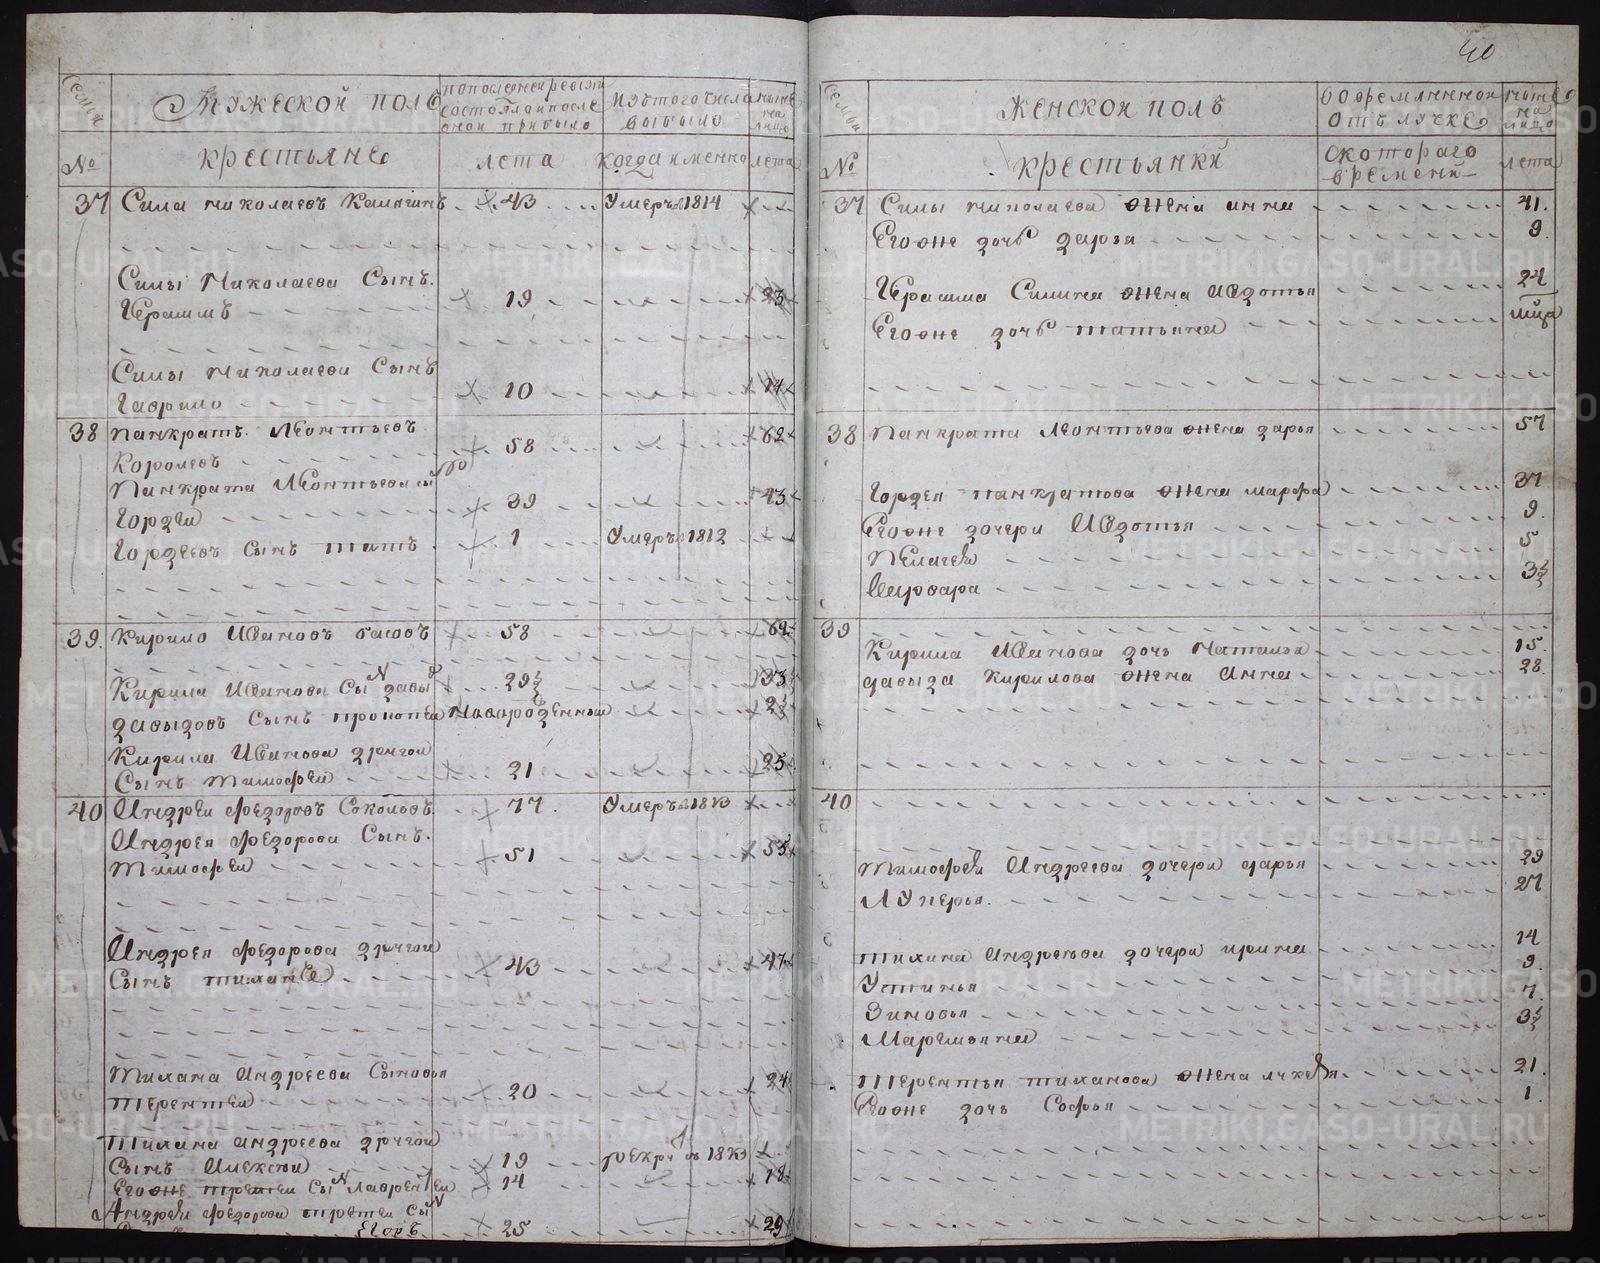 40
Семьи
Мужеской полъ
По последней ревизи
состояло и после
оной прибыло
Изъ того числа
выбыло
ныне
на
лицо
№
крестьяне
лета
когда именно
лета
37 Сила Николаевъ Калягинъ 43 Умеръ в 1814
Силы Николаева Сынъ
Герасимъ 19 23
Силы Николаева Сынъ
Гаврило 10 14
38 Панкратъ Леонтьевъ
Королевъ 58 62
Панкрата Леонтьева сынъ
Гордеи 39 43
Гордеевъ Сынъ 1 Умеръ в 1812
39. Кирило Ивановъ 58 62
Кирила Иванова Сынъ давыдъ 29½ 33½
давыдовъ Сынъ Новорожденныи 2½
Кирила Иванова другой
Сынъ Тимофеи 21 25
40 Андреи Федоровъ Соколовъ 77. Умеръ в 1813
Андрея Федорова Сынъ.
Тимофеи 51 55
Андрея Федорова другои
Сынъ тихан 43 47
Тихана Андреева Сыновья
терентеи 20 24
Тихана андреева другои
Сынъ Алексеи 19 рекру в 1813
Его же третеи Сынъ лаврентеи 14 18
Андрея Федорова третеи Сынъ
Егоръ 25 29
Семьи
Женской полъ
Во временной
отълучке
ныне
на
лицо
№
крестьянки
с котораго
времени
лета
37 Силы Николаева жена анна 41.
Его же дочь дарья 9
Герасима Силина жена Авдотья 24
Его же дочь татьяна
38 Панкрата Леонтьева жена дарья 57
Гордея панкратова жена марфа 37
Его же дочери Авдотья 9.
Пелагея 5
Варвара 3½
39
Кирила Иванова дочь Наталья 15.
давыда Кирилова жена Анна 28.
40
Тимофея Андреева дочери дарья 29
Лукерья. 27
тихана Андреева дочери ирина 14
Устинья 9.
Зиновья 7.
Маремьяна 3½
Терентья тиханова жена лукерья. 21.
Его же дочь Софья 1.
METRIKI.GASO-URAL.RU